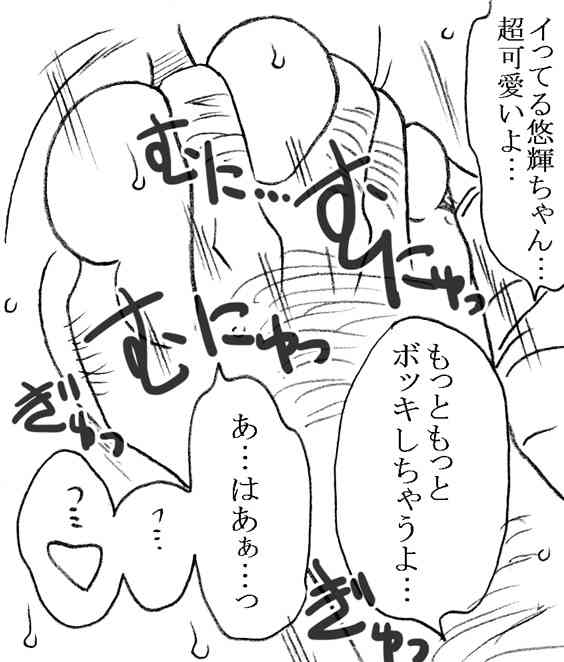 イってる悠輝ちゃん…
超可愛いよ…
むに…
むにゅっ
むにゅっ
もっともっと
ボッキしちゃうよ…
ぎゅっ
あ…はあぁ…っ
…
っ…
ぎゅっ